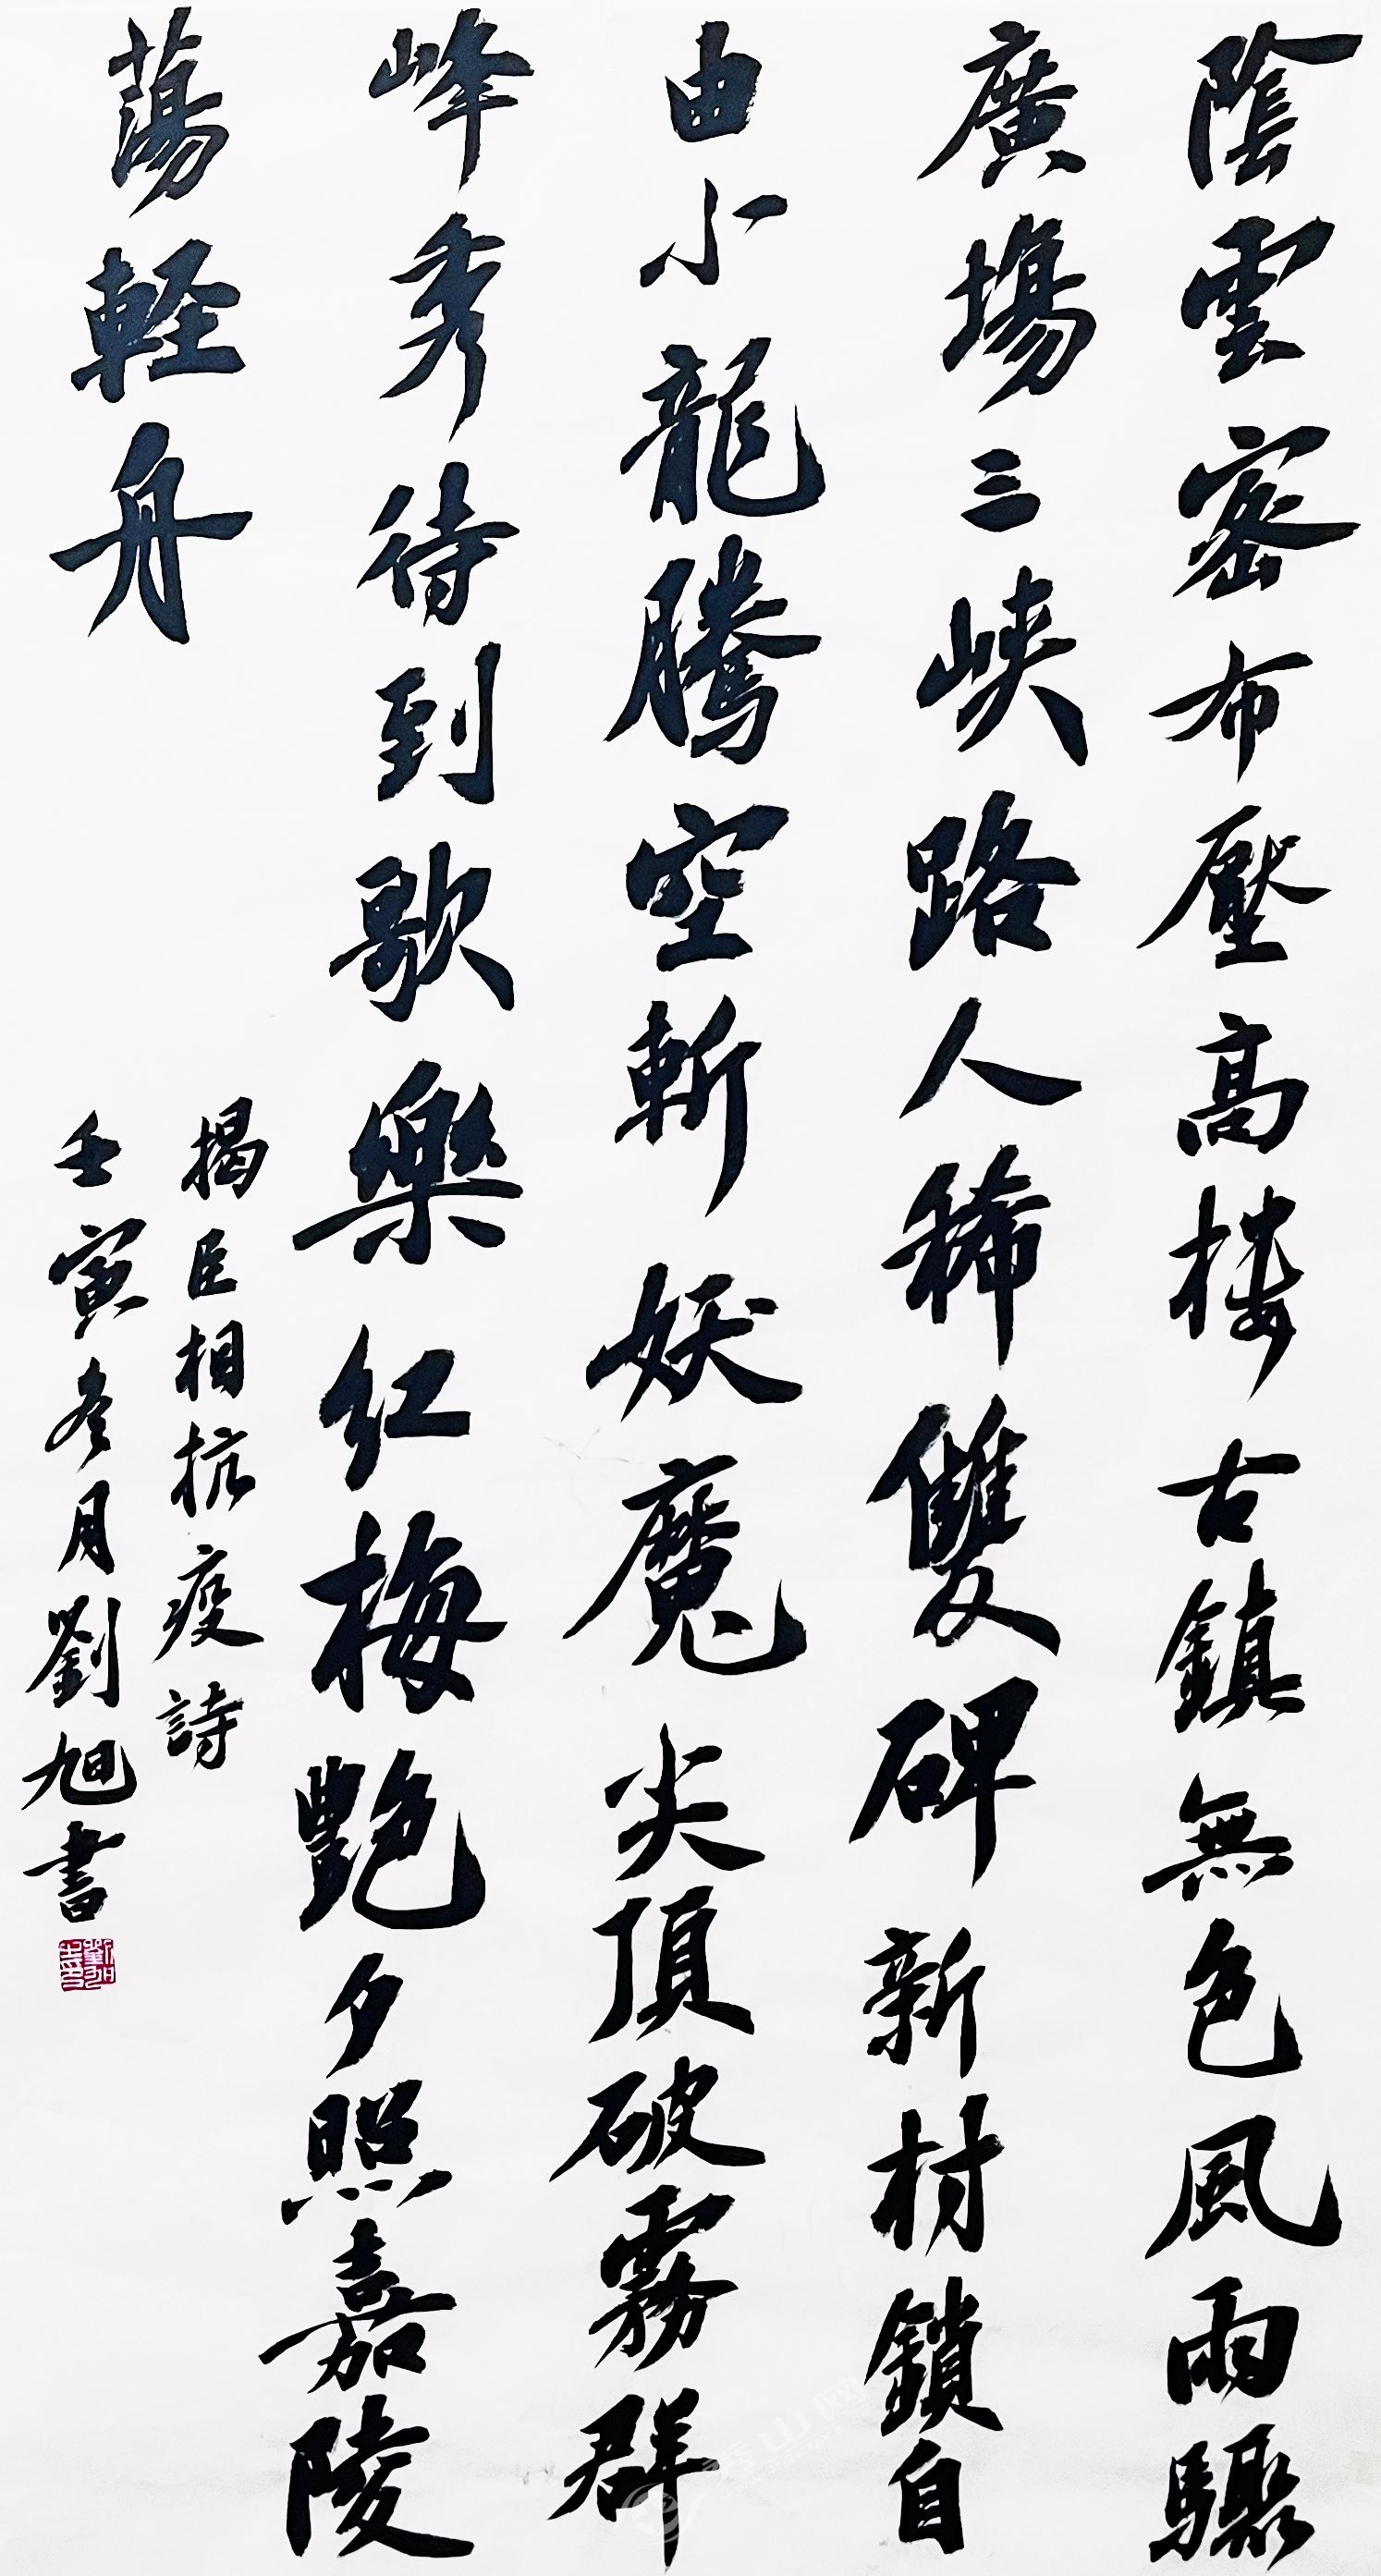 陰雲密布壓高樓古鎮無色風雨驟
廣場三峽路人稀雙碑新村鎖自
由小龍騰空斬妖魔尖頂破霧群
峰秀待到歌樂红梅艷夕照嘉陵
蕩軽舟
揭臣相抗疫詩
壬寅冬月劉旭書